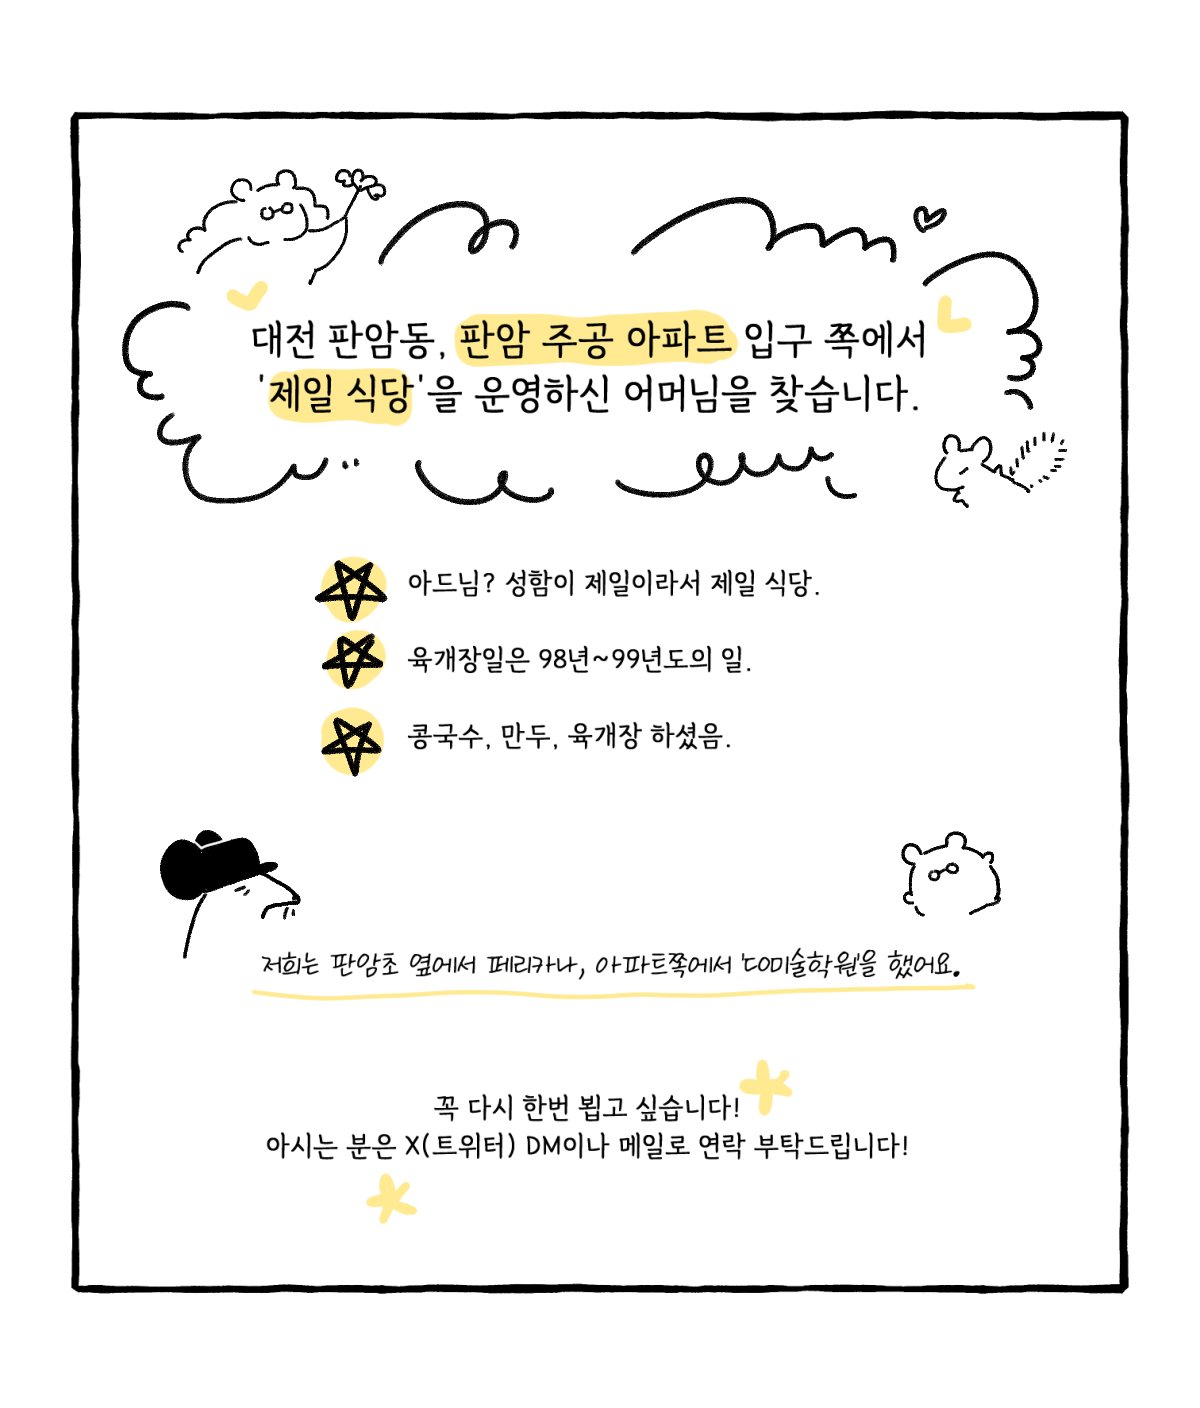 대전 판암동, 판암 주공 아파트 입구 쪽에서
'제일 식당'을 운영하신 어머님을 찾습니다.
아드님? 성함이 제일이라서 제일 식당.
육개장일은 98년~99년도의 일.
콩국수, 만두, 육개장 하셨음.
저희는 판암초 옆에서 페리카나, 아파트쪽에서 'CO미술학원'을 했어요.
꼭 다시 한번 뵙고 싶습니다!
아시는 분은 X(트위터) DM이나 메일로 연락 부탁드립니다!